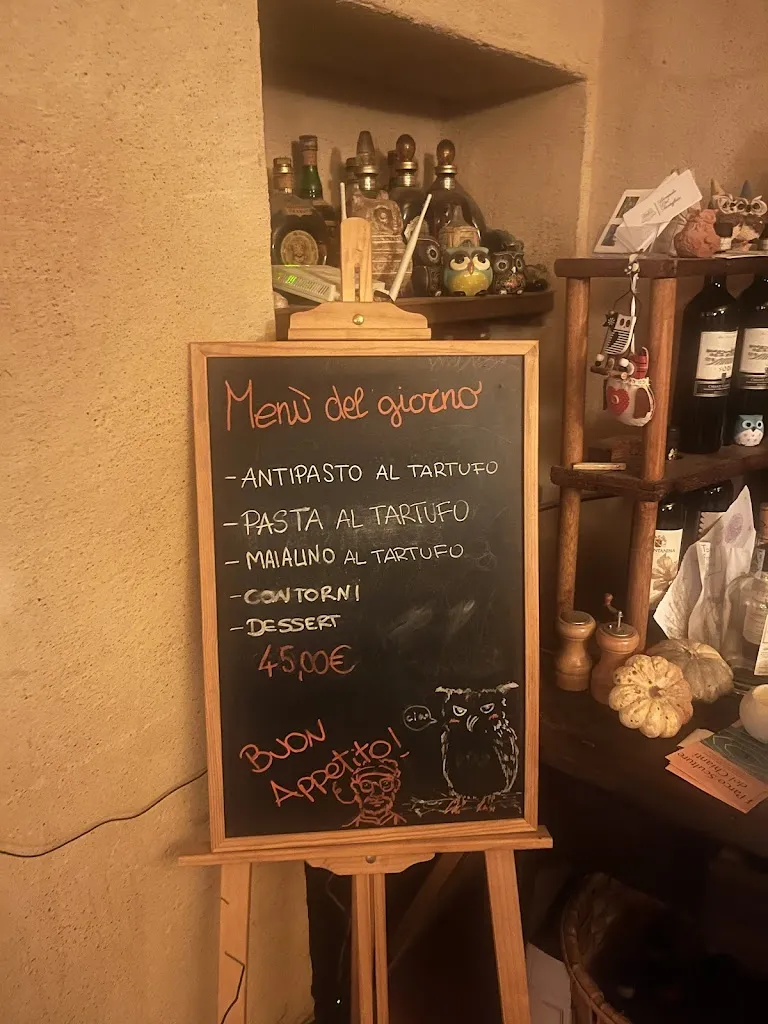 Menù del giorno
- ANTIPASTO AL TARTUFO
- PASTA AL TARTUFO
- MAIALINO AL TARTUFO
- CONTORNI
- DESSERT
45,00€
BUON
Appetito!
ciao
Parco Sculture
del Chianti